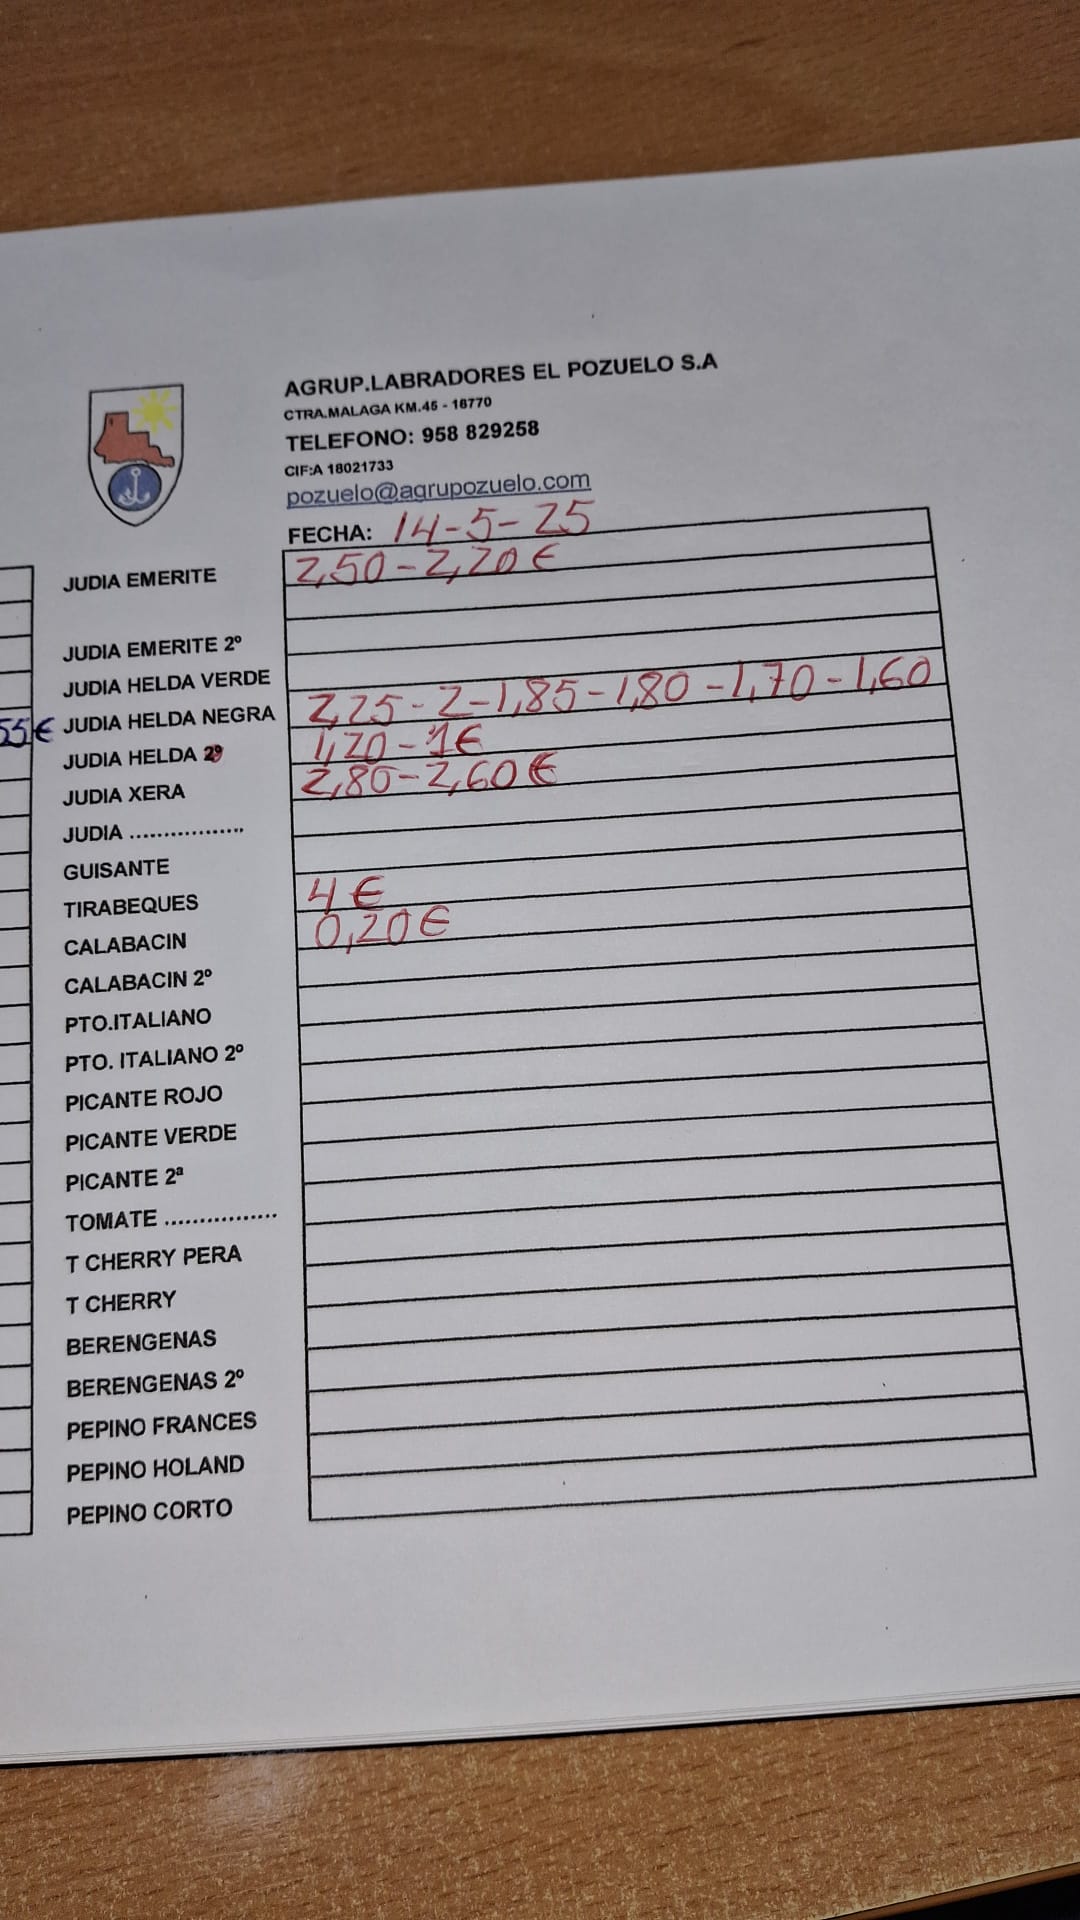 AGRUP.LABRADORES EL POZUELO S.A
CTRA.MALAGA KM.45 - 18770
TELEFONO: 958 829258
CIF:A 18021733
pozuelo@agrupozuelo.com
FECHA: 14-5-25
JUDIA EMERITE 2,50-2,20€
JUDIA EMERITE 2º
JUDIA HELDA VERDE
55€ JUDIA HELDA NEGRA 2,25-2-1,85-1,80-1,70-1,60
JUDIA HELDA 2º 1,20-1€
JUDIA XERA 2,80-2,60€
JUDIA .................
GUISANTE
TIRABEQUES 4€
CALABACIN 0,20€
CALABACIN 2º
PTO.ITALIANO
PTO. ITALIANO 2º
PICANTE ROJO
PICANTE VERDE
PICANTE 2ª
TOMATE ................
T CHERRY PERA
T CHERRY
BERENGENAS
BERENGENAS 2º
PEPINO FRANCES
PEPINO HOLAND
PEPINO CORTO